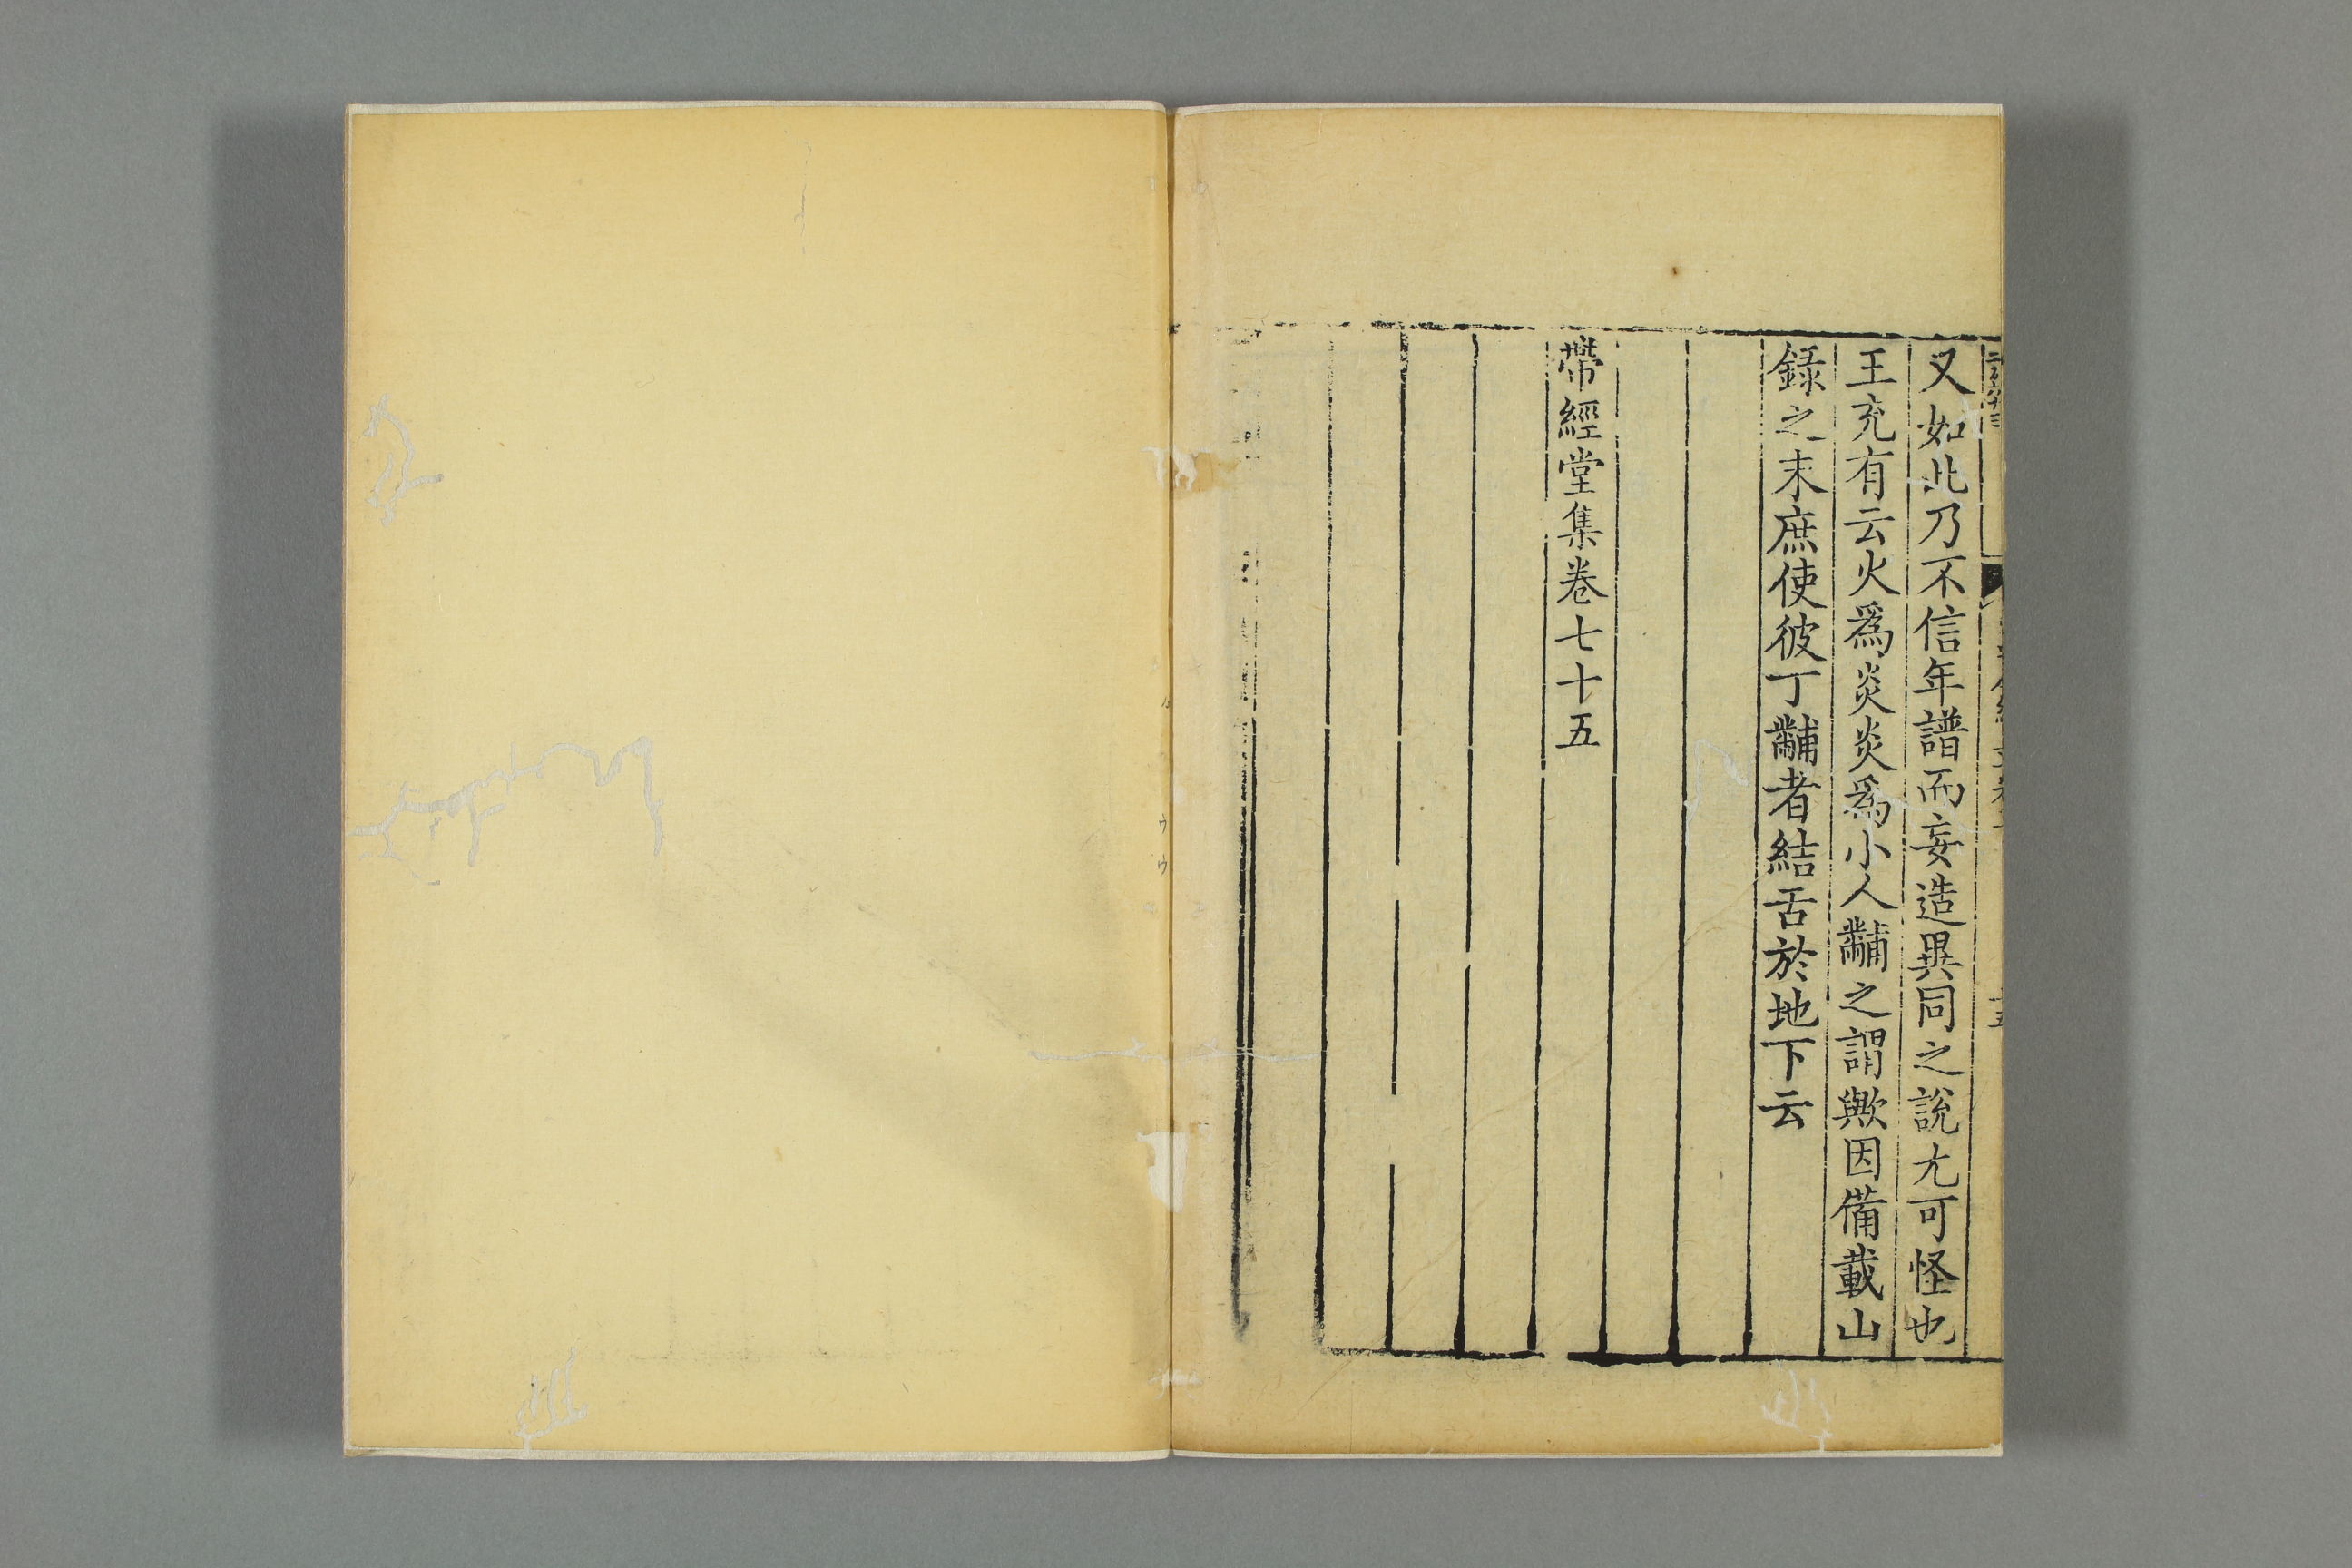 又如此乃不信年譜而妄造異同之說尤可怪也
王充有云火爲炎炎爲小人黼之謂歟因備載山
錄之末庶使彼丁黼者結舌於地下云
帶經堂集卷七十五